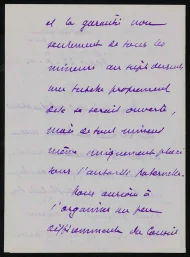 et la garantie non
seulement de tous les
mineurs au sujet desquels
une tutelle proprement
dite se serait ouverte,
mais de tous mineurs
même uniquement placés
sous l'autorité paternelle.
Nous aurions à
l'organiser un peu
différemment du Conseil